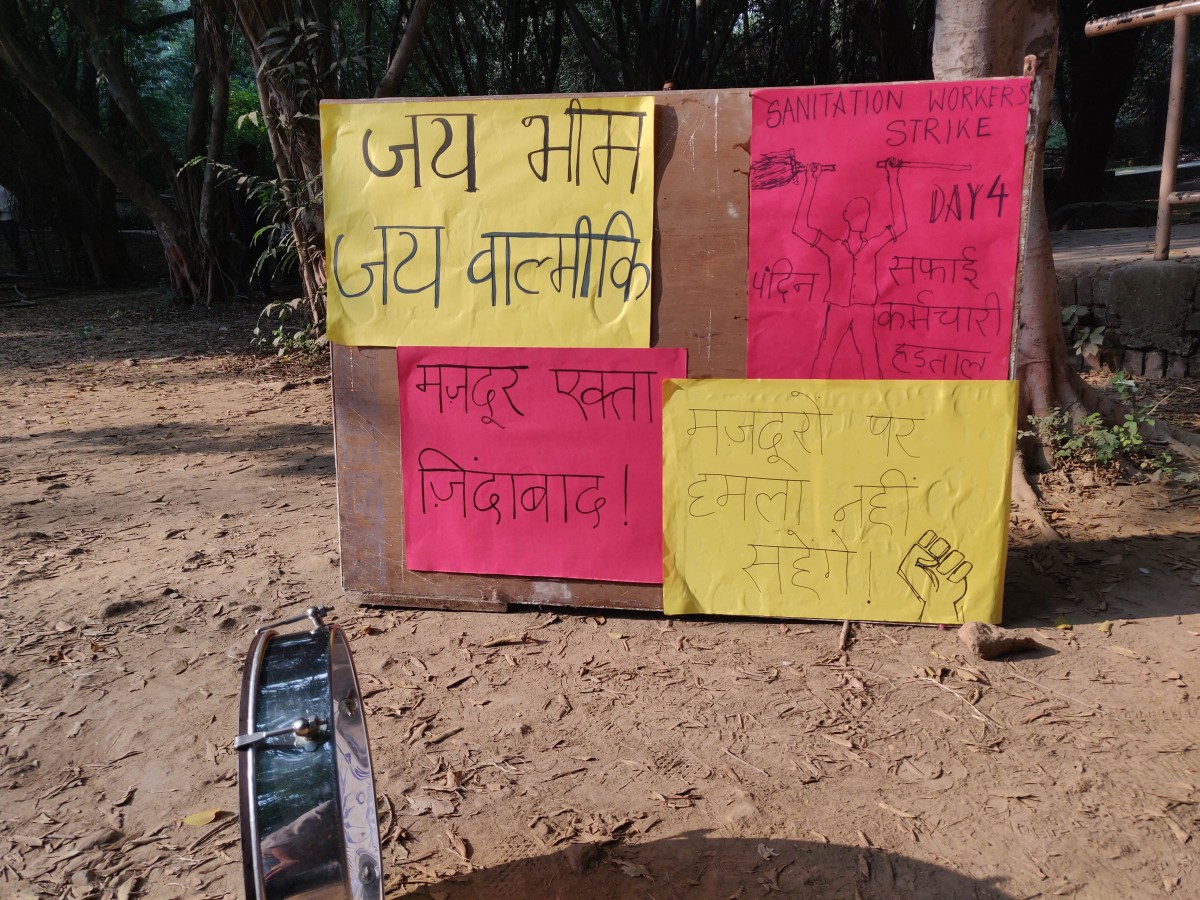 जय भीम
जय वाल्मीकि
SANITATION WORKERS
STRIKE
DAY 4
सफाई
कर्मचारी
हड़ताल
मज़दूर एकता
ज़िंदाबाद!
मज़दूरों पर
हमला नहीं
सहेंगे!